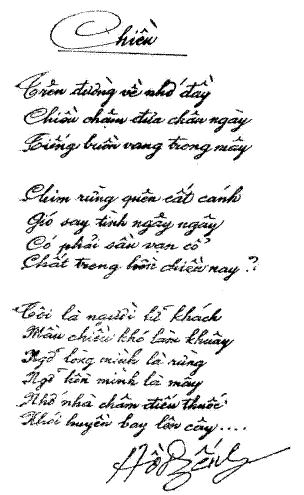 Chiều
Trên đường về nhớ đầy
Chiều chậm đưa chân ngày
Tiếng buồn vang trong mây
Chim rừng quên cất cánh
Gió say tình ngây ngây
Có phải sầu vạn cổ
Chất trong hồn chiều nay ?
Tôi là người lữ khách
Mầu chiều khó làm khuây
Ngỡ lòng mình là rừng
Ngỡ hồn mình là mây
Nhớ nhà châm điếu thuốc
Khói huyền bay lên cây ....
Hồ Dzếnh